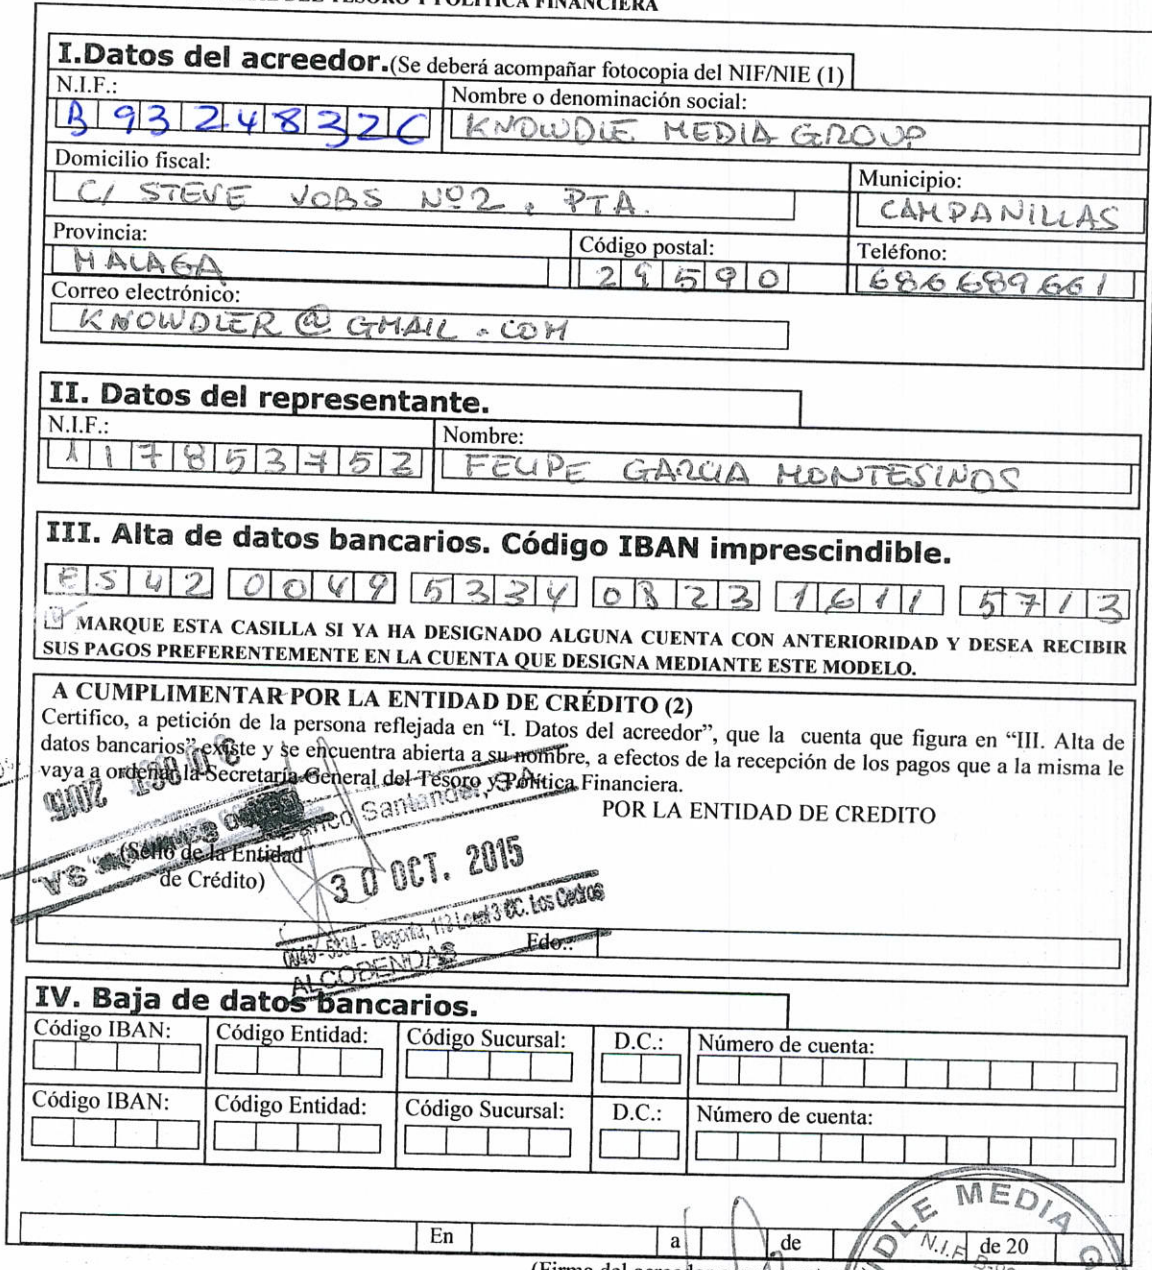 DEL TESORO Y POLÍTICA FINANCIERA
I.Datos del acreedor.(Se deberá acompañar fotocopia del NIF/NIE (1)
N.I.F.: Nombre o denominación social:
B 9 3 2 4 8 3 2 6 KNOWDLE MEDIA GROUP
Domicilio fiscal: Municipio:
C/ STEVE JOBS Nº2. PTA. CAMPANILLAS
Provincia: Código postal: Teléfono:
MALAGA 2 9 5 9 0 686689661
Correo electrónico:
KNOWDLER@GMAIL.COM
II. Datos del representante.
N.I.F.: Nombre:
1 1 7 8 5 3 7 5 Z FELIPE GARCIA MONTESINOS
III. Alta de datos bancarios. Código IBAN imprescindible.
E S 4 2 0 0 4 9 5 3 3 4 0 8 2 3 1 6 1 1 5 7 1 3
MARQUE ESTA CASILLA SI YA HA DESIGNADO ALGUNA CUENTA CON ANTERIORIDAD Y DESEA RECIBIR
SUS PAGOS PREFERENTEMENTE EN LA CUENTA QUE DESIGNA MEDIANTE ESTE MODELO.
A CUMPLIMENTAR POR LA ENTIDAD DE CRÉDITO (2)
Certifico, a petición de la persona reflejada en “I. Datos del acreedor”, que la cuenta que figura en “III. Alta de
datos bancarios” existe y se encuentra abierta a su nombre, a efectos de la recepción de los pagos que a la misma le
vaya a ordenar la Secretaria General del Tesoro y Política Financiera.
30 OCT. 2015
POR LA ENTIDAD DE CREDITO
Banco Santander, S.A.
(Sello de la Entidad
de Crédito)
30 OCT. 2015
0049-5334 - Begonia, 112 Local 3 CC. Los Cedros
ALCOBENDAS
Fdo.:
IV. Baja de datos bancarios.
Código IBAN: Código Entidad: Código Sucursal: D.C.: Número de cuenta:
Código IBAN: Código Entidad: Código Sucursal: D.C.: Número de cuenta:
MEDIA
N.I.F.
En a de de 20